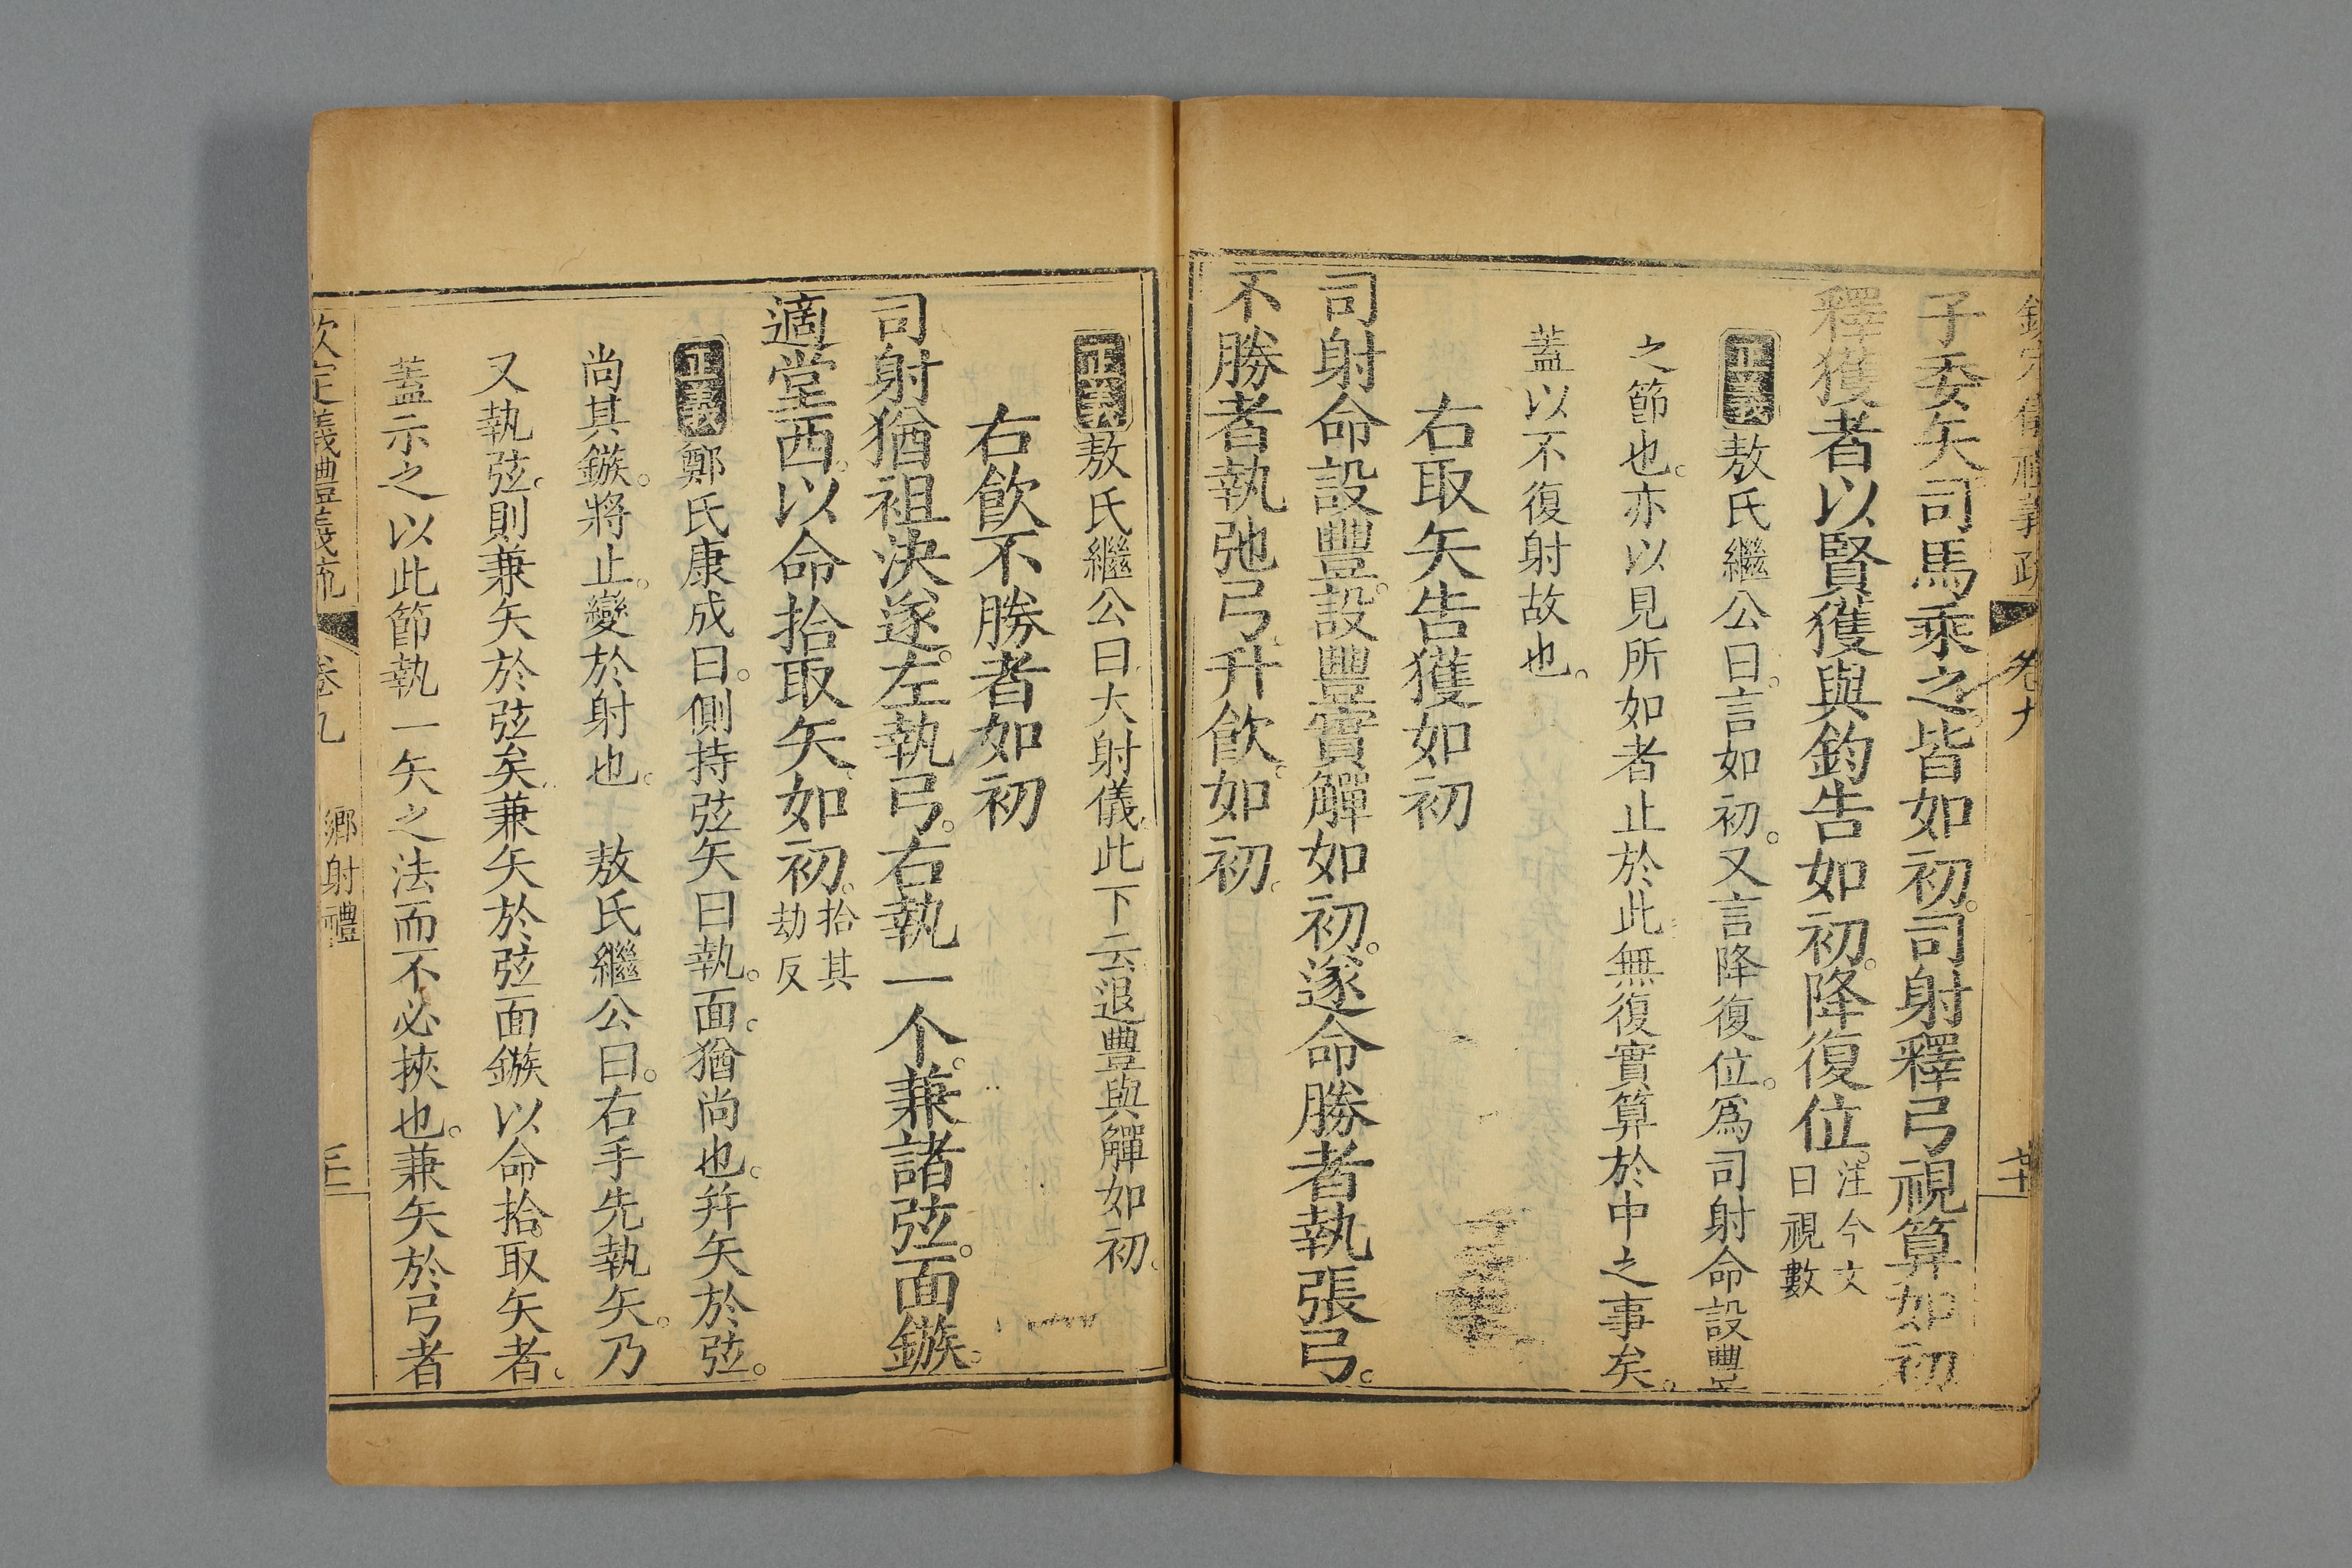 欽定儀禮義疏 卷九 
子委矢司馬乘之皆如初司射釋弓視算如初
釋獲者以賢獲與鈞告如初降復位注今文曰視數
正義敖氏繼公曰言如初又言降復位爲司射命設豐
之節也亦以見所如者止於此無復實算於中之事矣
蓋以不復射故也
右取矢告獲如初
司射命設豐設豐實觶如初遂命勝者執張弓
不勝者執弛弓升飮如初
正義敖氏繼公曰大射儀此下云退豐與觶如初
右飮不勝者如初
司射猶袒決遂左執弓右執一个兼諸弦面鏃
適堂西以命拾取矢如初拾其劫反
正義鄭氏康成曰側持弦矢曰執面猶尚也并矢於弦
尚其鏃將止變於射也 敖氏繼公曰右手先執矢乃
又執弦則兼矢於弦矣兼矢於弦面鏃以命拾取矢者
蓋示之以此節執一矢之法而不必挾也兼矢於弓者
欽定儀禮義疏 卷九 鄉射禮